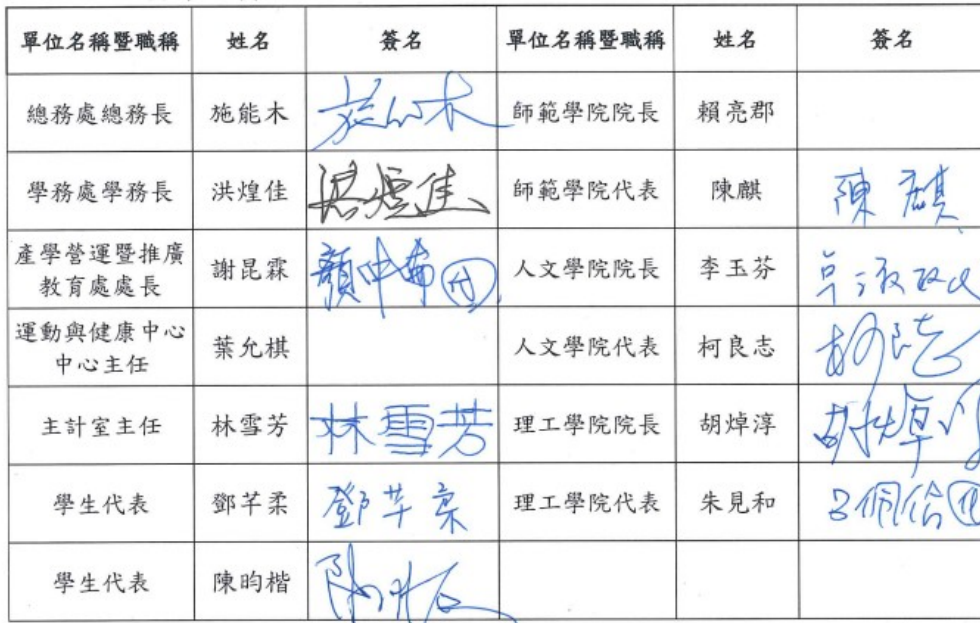 單位名稱暨職稱 姓名 簽名 單位名稱暨職稱 姓名 簽名
總務處總務長 施能木 師範學院院長 賴亮郡
學務處學務長 洪煌佳 洪煌佳 師範學院代表 陳麒 陳麒
產學營運暨推廣
教育處處長 謝昆霖 代 人文學院院長 李玉芬
運動與健康中心
中心主任 葉允棋 人文學院代表 柯良志 柯良志
主計室主任 林雪芳 林雪芳 理工學院院長 胡焯淳 胡焯淳
學生代表 鄧芊柔 鄧芊柔 理工學院代表 朱見和 代
學生代表 陳昀楷